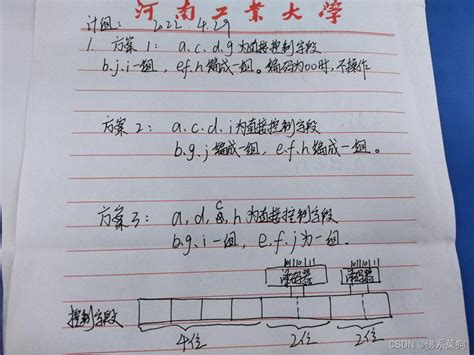 河南工业大学
计组: 2022.4.29
1. 方案1: a.c.d.g为直接控制字段
b.j.i一组, e.f.h编成一组。编码为00时,不操作
方案2: a.c.d.i为直接控制字段
b.g.j编成一组, e.f.h编成一组。
方案3: a,d,c,h为直接控制字段
b.g.i一组, e.f.j为一组。
01 10 11 01 10 11
译码器 译码器
控制字段
4位 2位 2位
CSDN @佛系菜狗